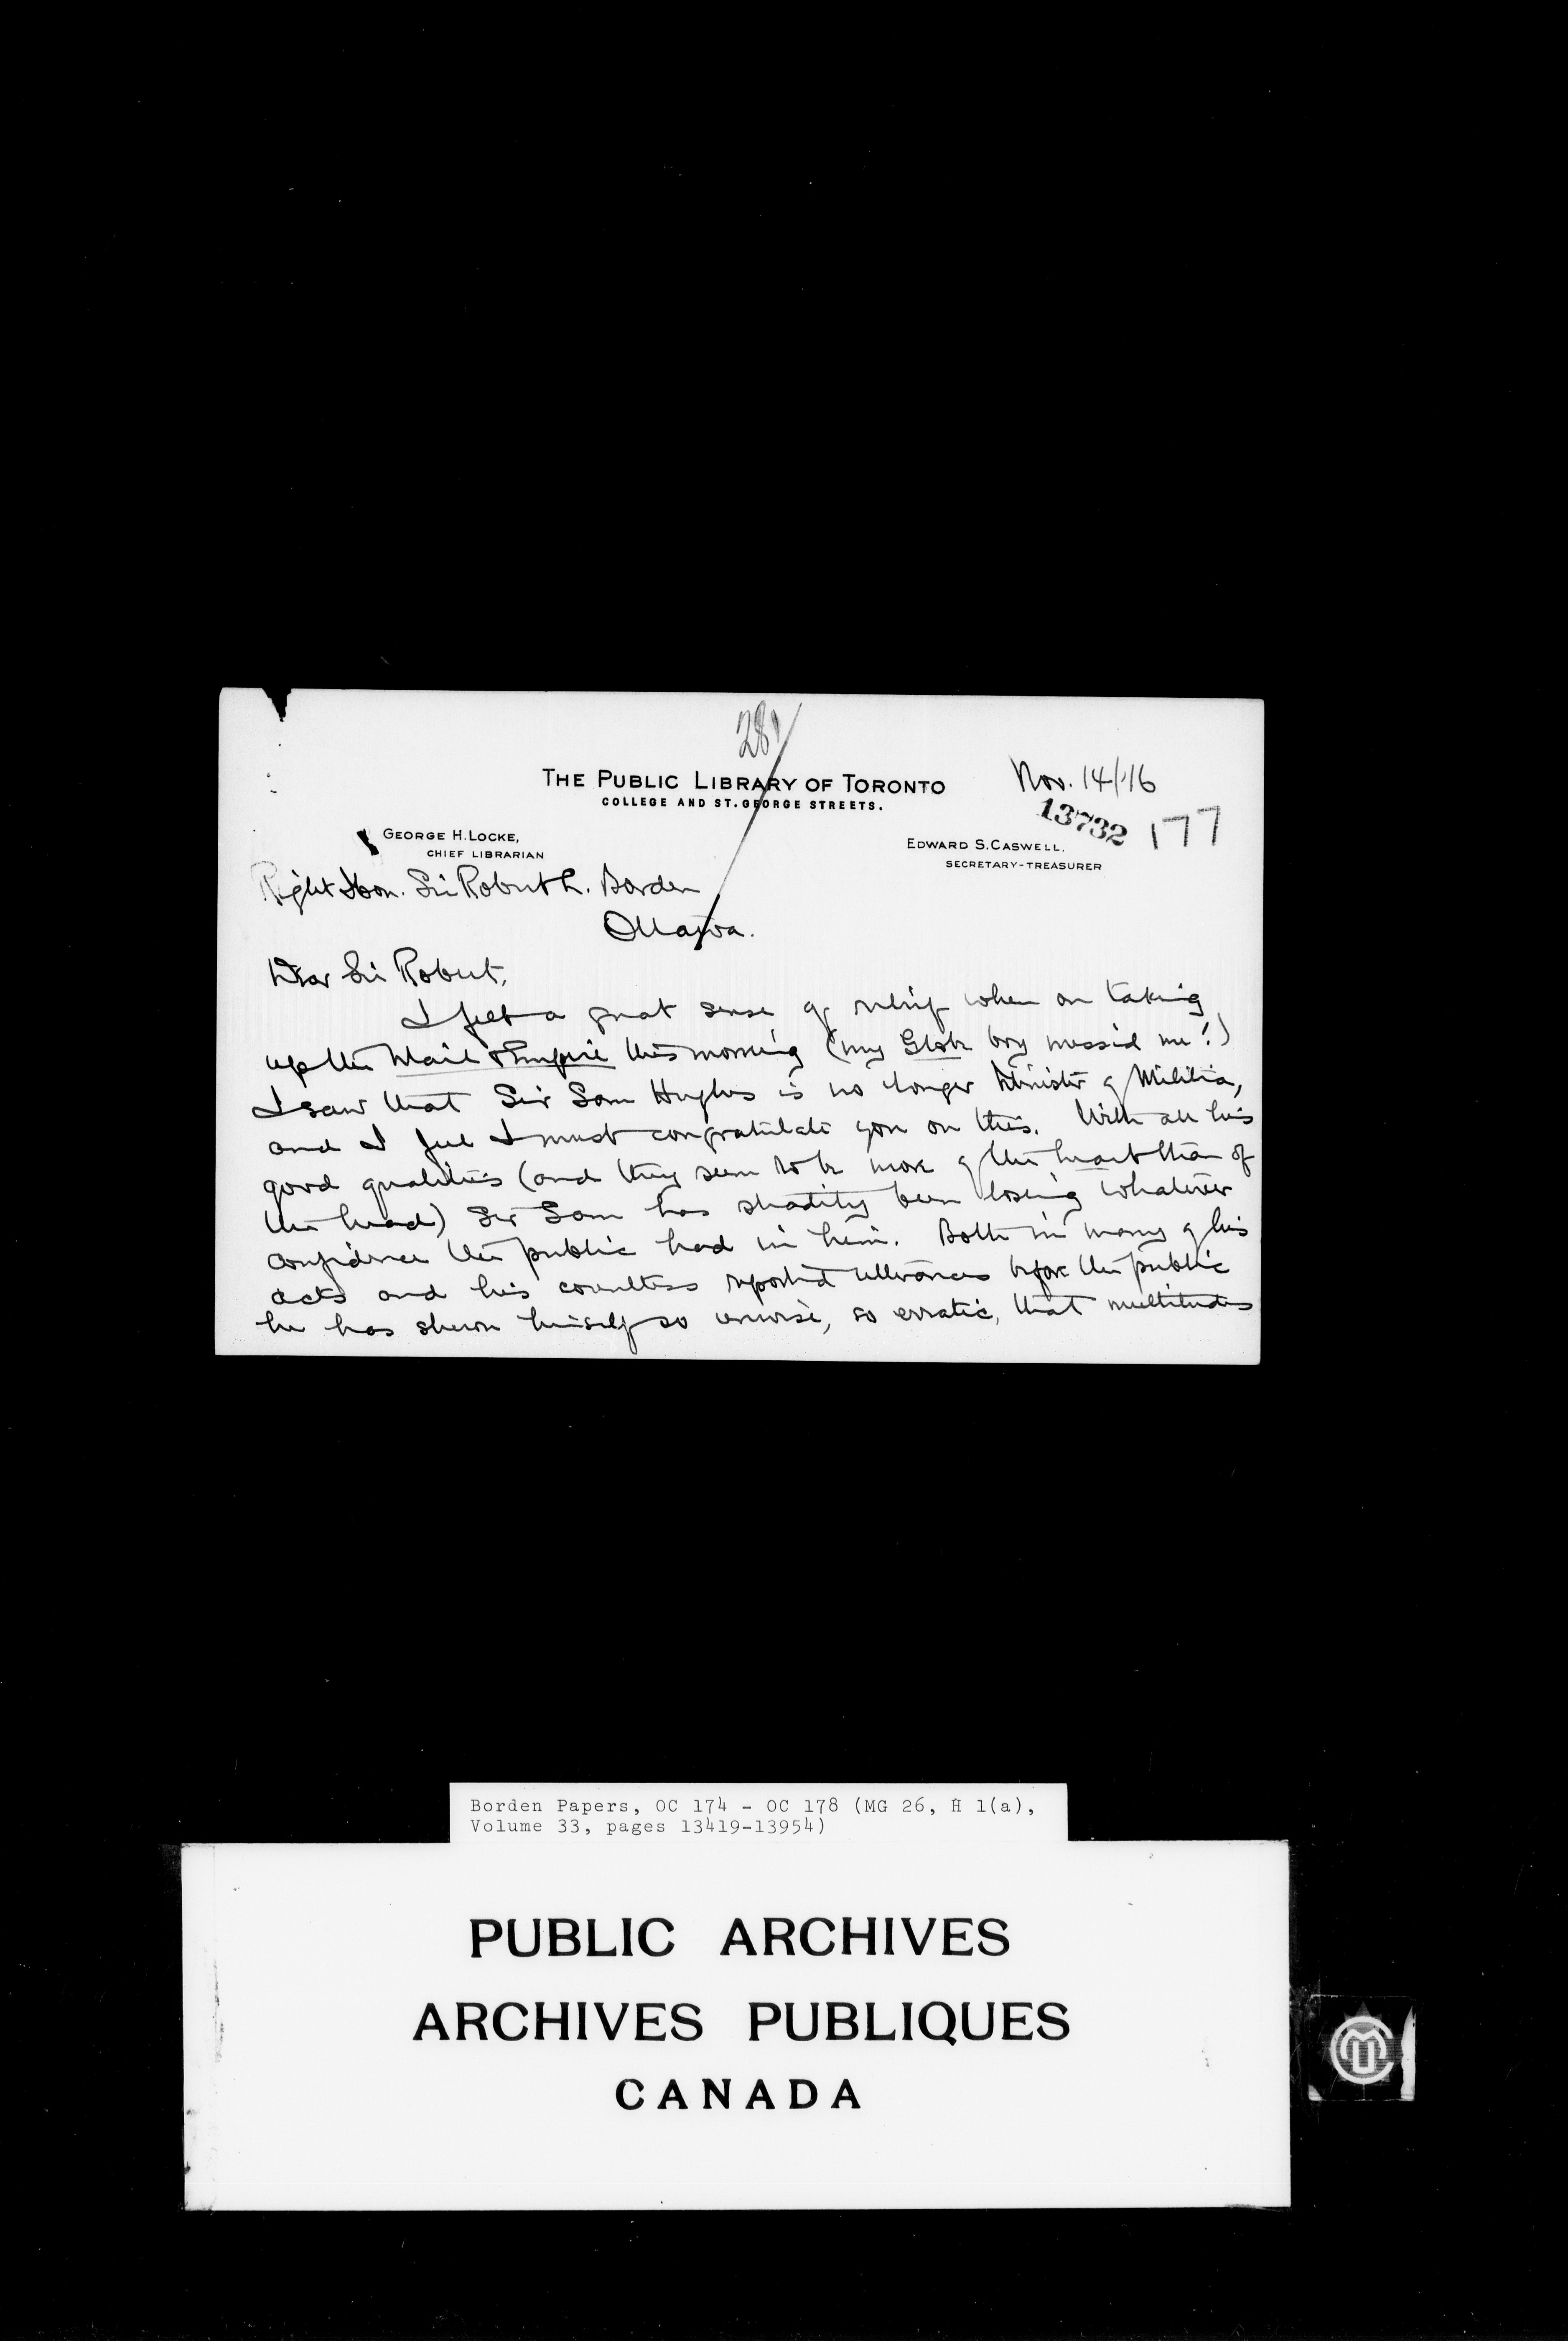 28
THE PUBLIC LIBRARY OF TORONTO
COLLEGE AND ST. GEORGE STREETS.
Nov. 14/16
13732 177
GEORGE H. LOCKE,
CHIEF LIBRARIAN
EDWARD S. CASWELL.
SECRETARY-TREASURER
Right Hon. Sir Robert L. Borden
Ottawa.
Dear Sir Robert,
I felt a great sense of relief when on taking
up the Mail & Empire this morning (my Globe boy missed me!)
I saw that Sir Sam Hughes is no longer Minister of Militia,
and I feel I must congratulate you on this. With all his
good qualities (and they seem to be more of the heart than of
the head) Sir Sam has steadily been losing whatever
confidence the public had in him. Both in many of his
acts and his countless reported utterances before the public
he has shewn himself so unwise, so erratic, that multitudes
Borden Papers, OC 174 - OC 178 (MG 26, H 1(a),
Volume 33, pages 13419-13954)
PUBLIC ARCHIVES
ARCHIVES PUBLIQUES
CANADA